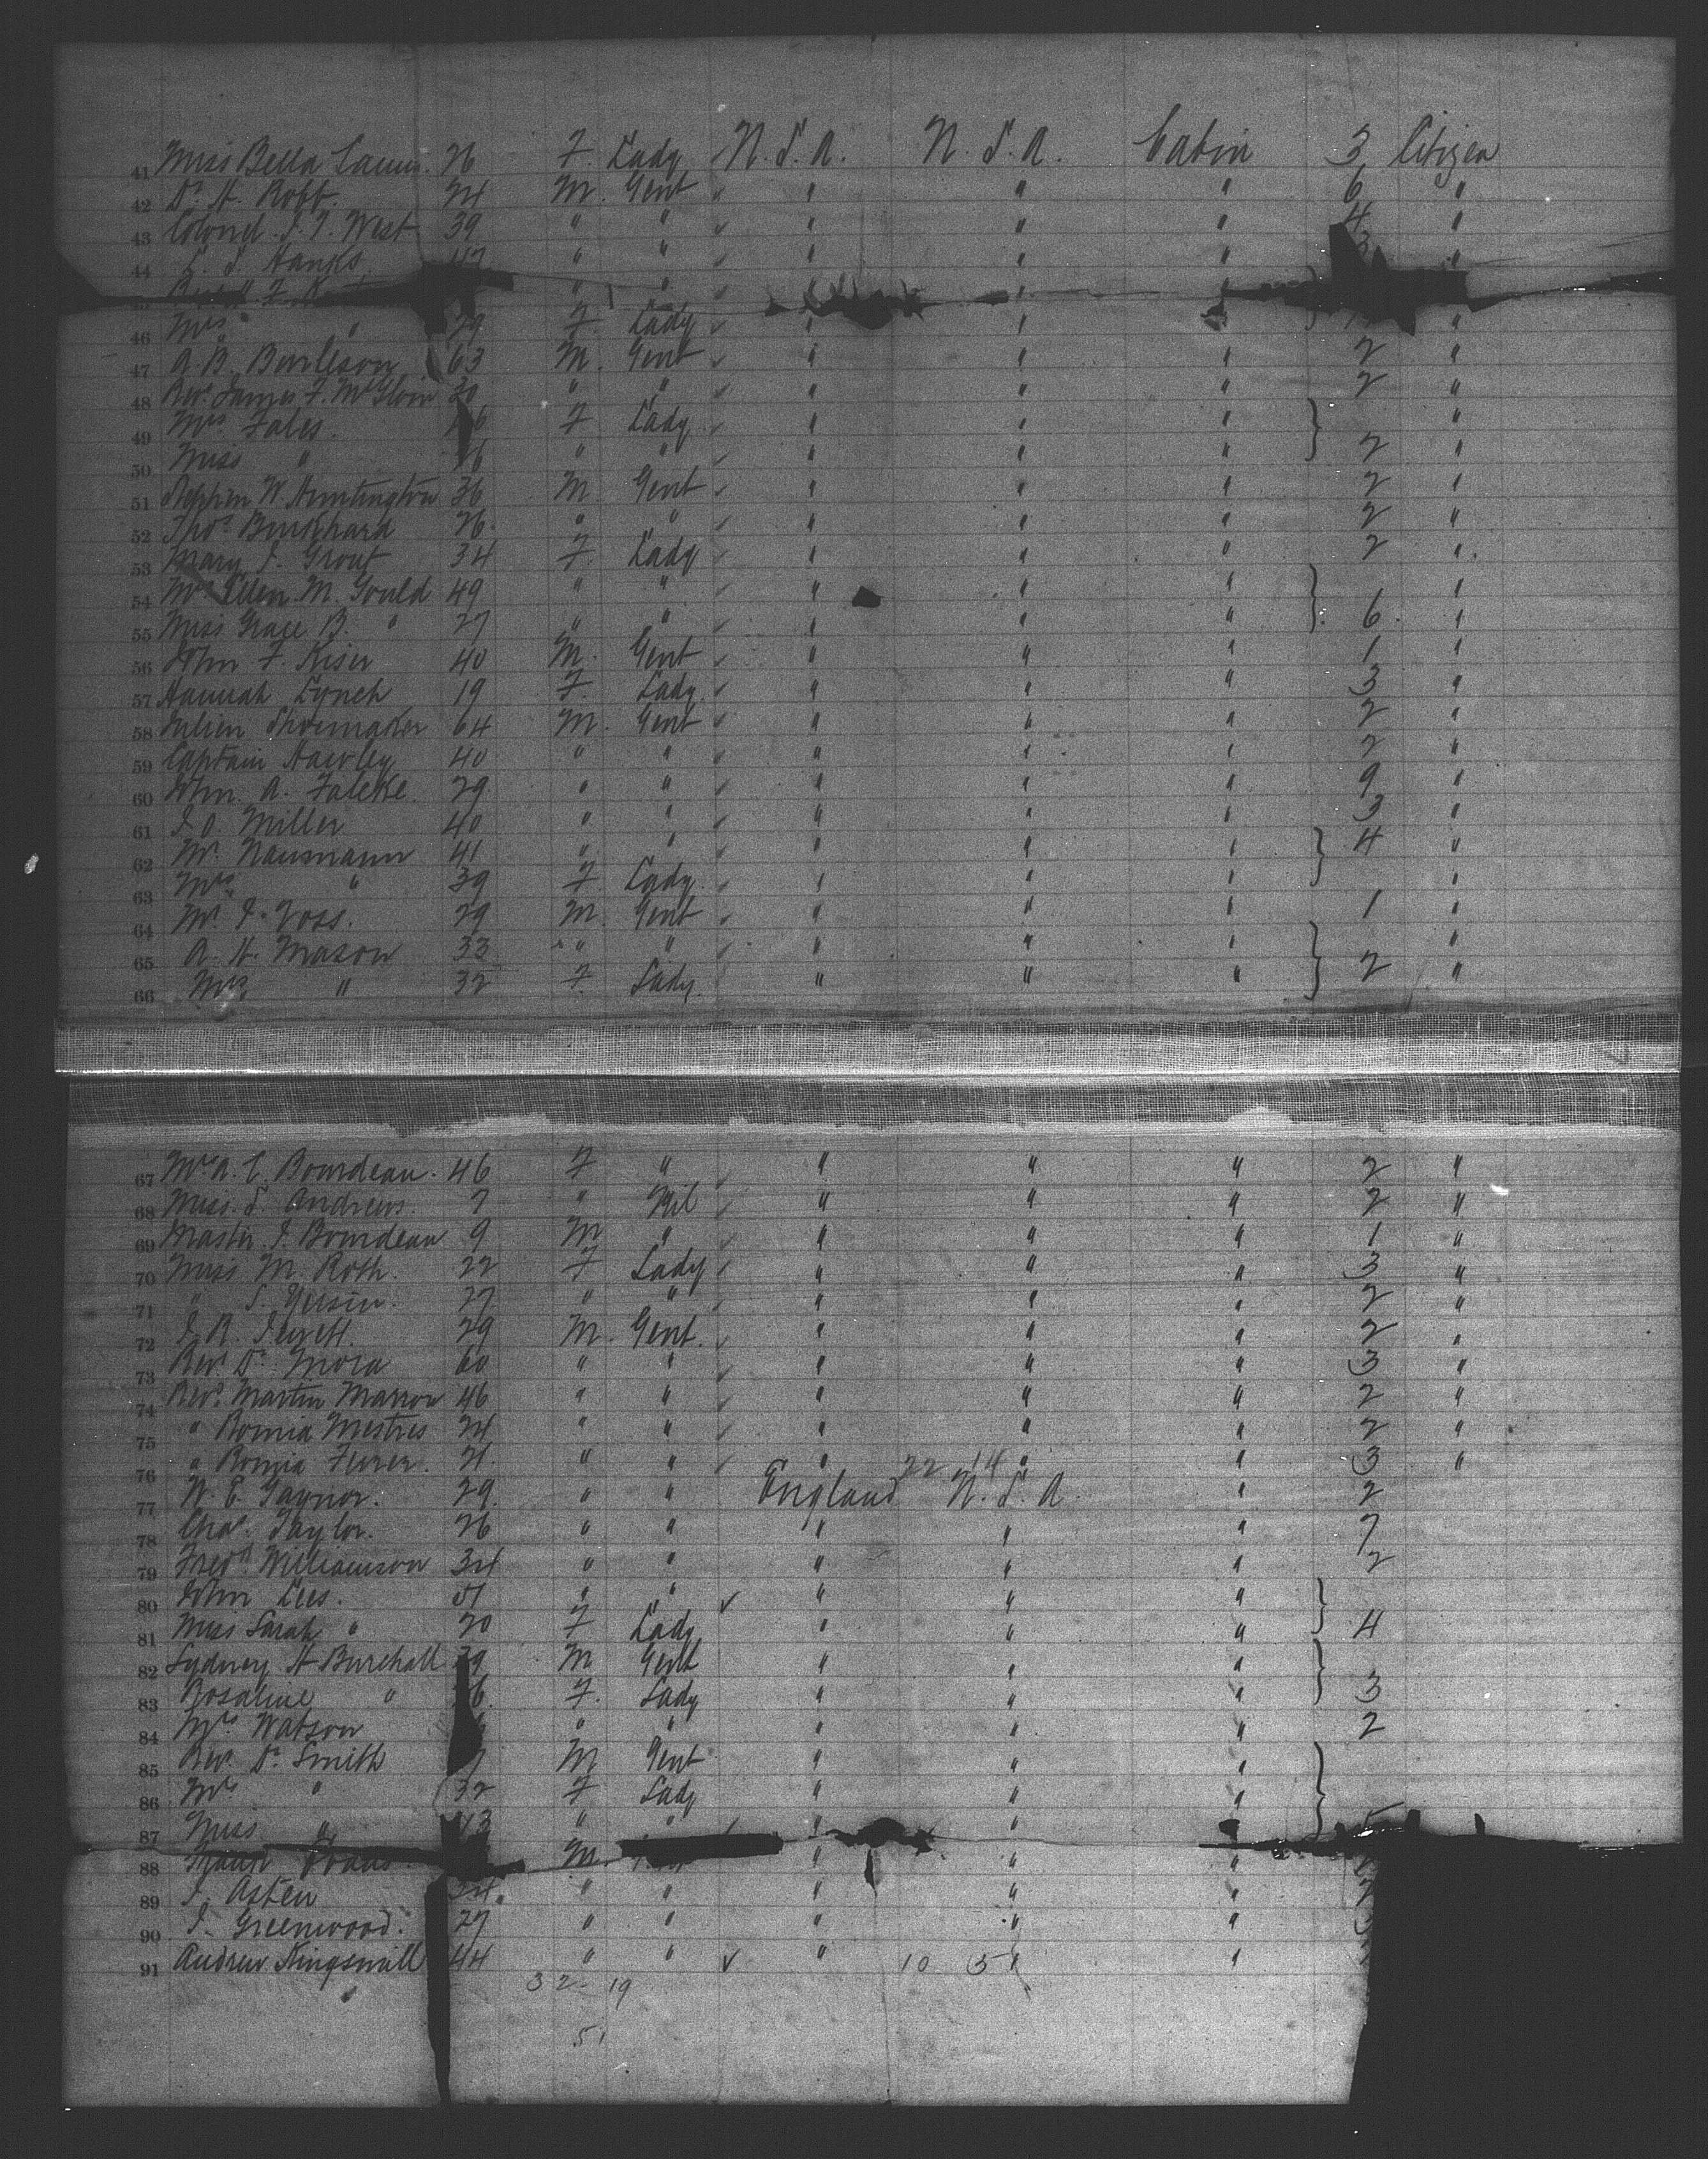 41 Miss Bella 26 F. Lady U.S.A. U.S.A. Cabin 3 Citizen
42 Dr. H. Robb. 24 M. Gent " " " 6 "
43 Colonel J. T. West 39 " " " " " 4 "
44 Hanks " " " " " "
45
46 Mrs " 29 F. Lady " " "
47 A. B. Burleson 63 M. Gent " " " 2 "
48 Rev. James F. McGloin 30 " " " " " 2 "
49 Mrs Fales. F Lady " " " "
50 Miss " " " " " " 2 "
51 Stephen W. Huntington 36 M. Gent " " " 2 "
52 Thos. Burkhard 26. " " " " " 2 "
53 Mary J. Grout 34 F. Lady " " " 2 "
54 Mrs Ellen M. Gould 49 " " " " " "
55 Miss Grace B. " 27 " " " " " 6. "
56 John F. Kiser 40 M. Gent " " " 1 "
57 Hannah Lynch 19 F. Lady. " " " 3 "
58 Julien Shoemaker 64 M. Gent " " " 2 "
59 Captain Hawley 40 " " " " " 2 "
60 John. A. Faleke. 29. " " " " " 9 "
61 J. O. Miller 40 " " " " " 3 "
62 Mr. Naumann 41 " " " " " 4 "
63 Mrs " 39 F. Lady. " " " "
64 Mr. J. Voss. 29 M. Gent " " " 1 "
65 A. H. Mason 33 " " " " " "
66 Mrs " 32 F. Lady. " " " 2 "
67 Mrs A. C. Bourdeau. 46 F " " " " 2 "
68 Miss. S. Andrews. 7 " Nil " " " 2 "
69 Master. J. Bourdeau 9 M " " " " 1 "
70 Miss M. Roth. 22 F Lady " " " 3 "
71 " S. 27. " " " " " 2 "
72 J. R. 29 M. Gent. " " " 2 "
73 Rev. Dr. Mora 60 " " " " " 3 "
74 Revd. Martin Marron 46 " " " " " 2 "
75 " Mestres 24 " " " " " 2 "
76 " 21. " " " " " 3 "
22 14
77 W. E. Gaynor. 29. " " England U.S.A. " 2
78 Chas. Taylor. 26 " " " " " 7
79 Fredk Williamson 34 " " " " " 2
80 John Lees. 51 " " " " "
81 Miss Sarah " 20 F Lady " " " 4
82 Sydney H Burchall M Gent " " "
83 Rosaline " F. Lady " " " 3
84 Mrs Watson " " " " " 2
85 Rev. Dr. Smith M Gent " " "
86 Mrs " 32 F Lady " " "
87 Miss " " " " " " 5
88 M. " " "
89 J. Asten " " " " "
90 J. Greenwood. 27 " " " " "
91 Andrew Kingsmill 44 " " " " "
10 5
32 - 19
51